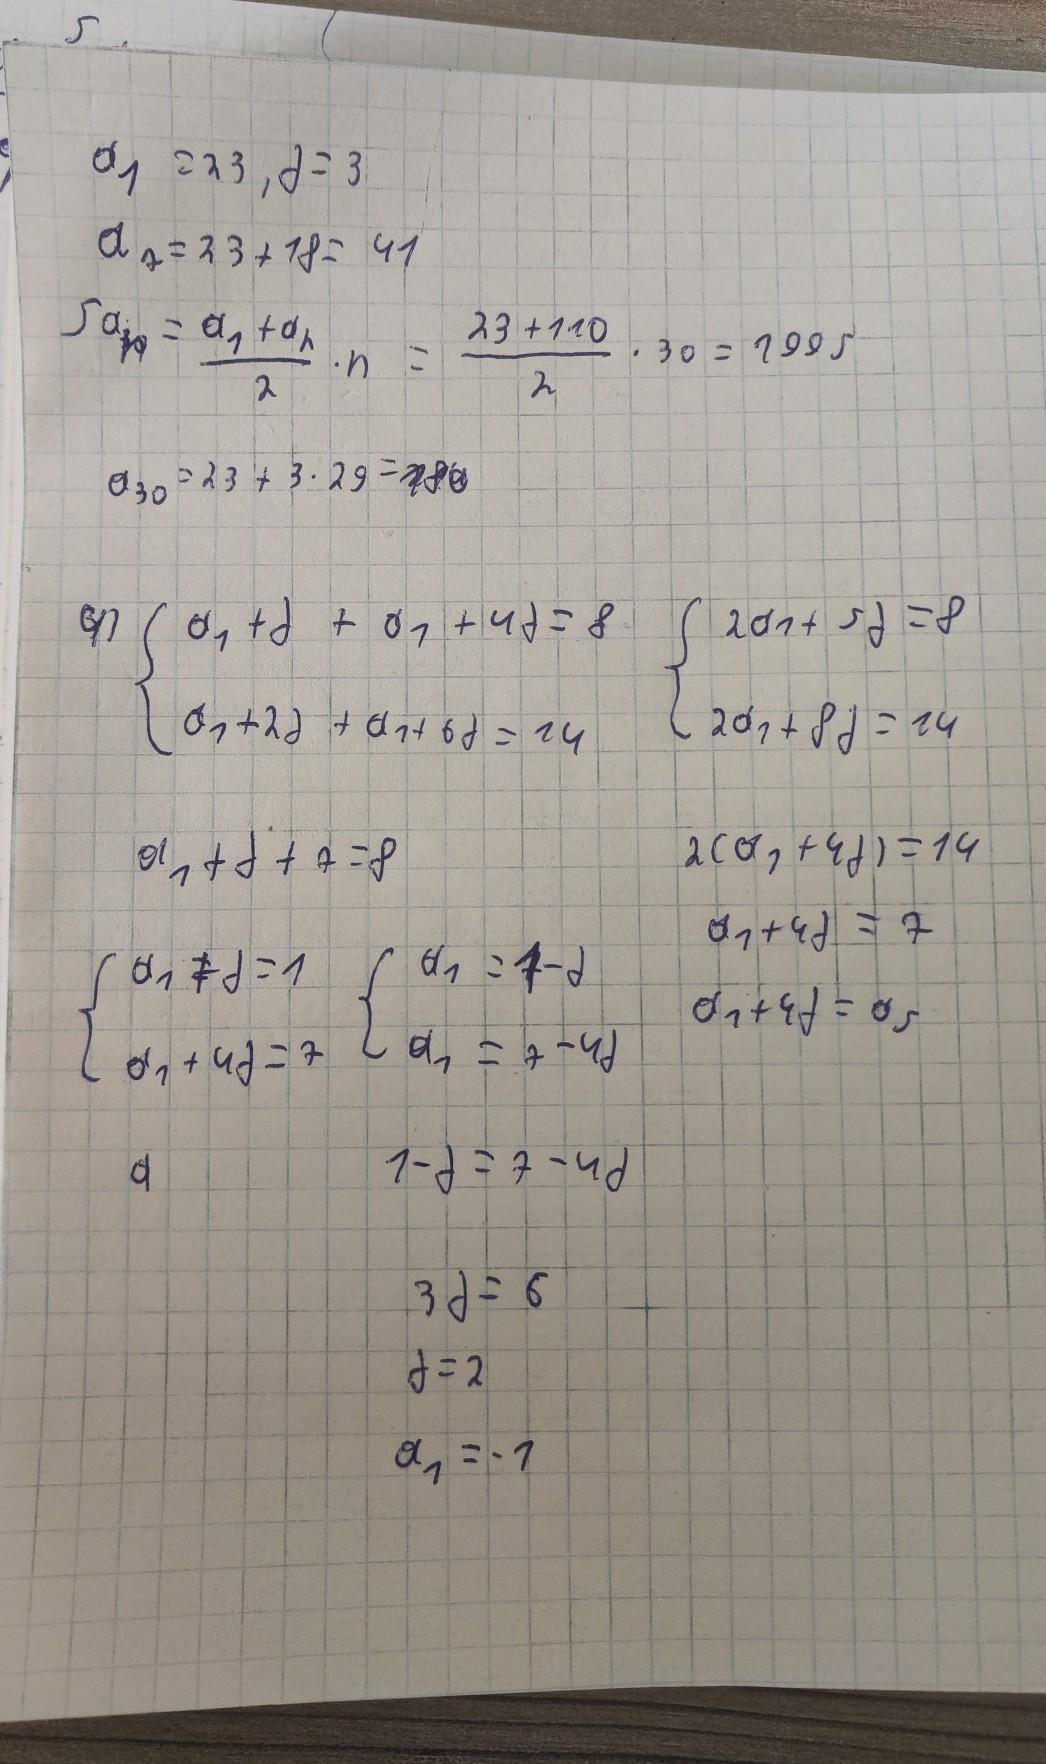 5.
a₁ = 23, d = 3
a₇ = 23 + 18 = 41
Sa₃₀ = (a₁ + aₙ)/2 · n = (23 + 110)/2 · 30 = 1995
a₃₀ = 23 + 3 · 29 =
{ a₁ + d + a₁ + 4d = 8 { 2a₁ + 5d = 8
a₁ + 2d + a₁ + 6d = 14 2a₁ + 8d = 14
a₁ + d + 7 = 8 2(a₁ + 4d) = 14
a₁ + 4d = 7
{ a₁ + d = 1 { a₁ = 1 - d
a₁ + 4d = a₅
a₁ + 4d = 7 a₁ = 7 - 4d
a 1 - d = 7 - 4d
3d = 6
d = 2
a₁ = -1